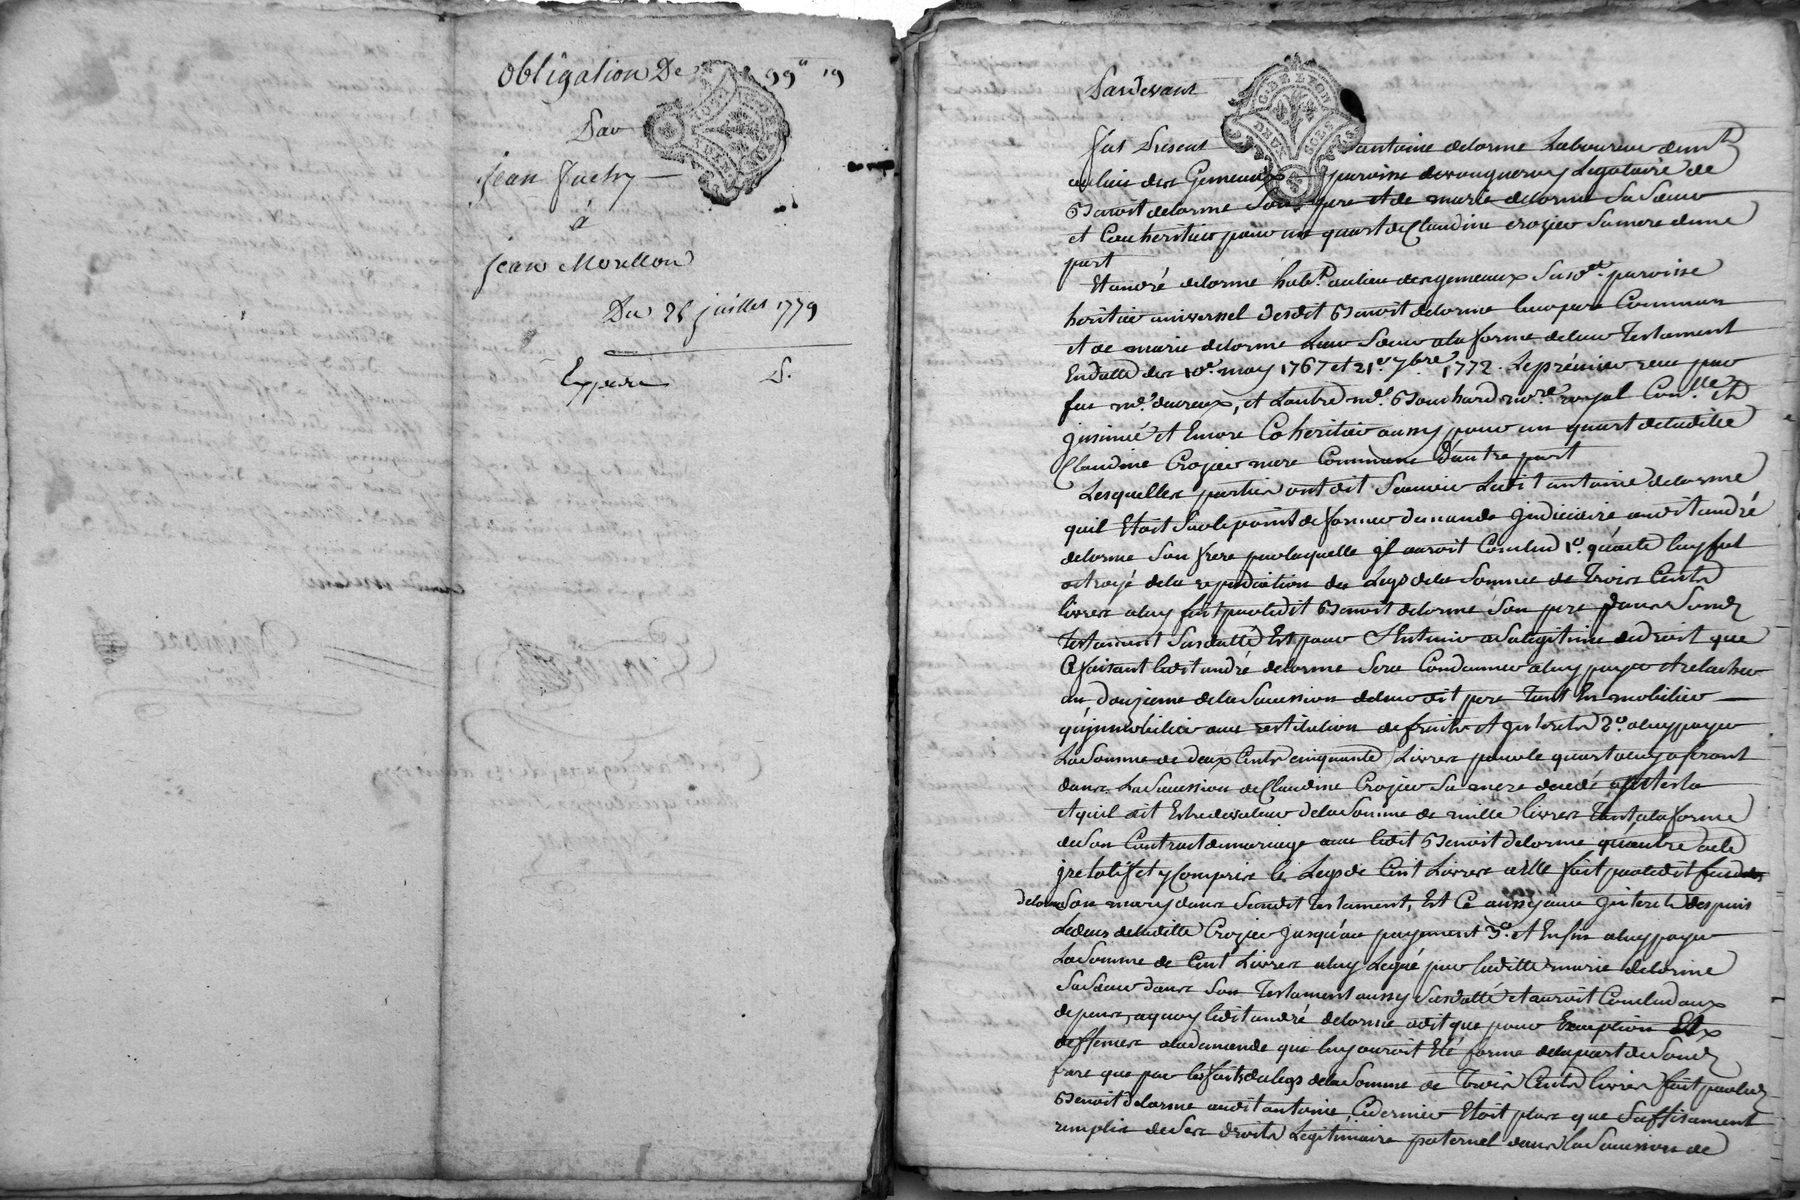 Obligation De 99ᵗᵗ 19
Par
Jean
à
Jean Morillon
Du 28 juillet 1779
Expedié S.
Pardevant
G. DE LYON
DEUX SOLS
fut Present antoine delorme Laboureur demᵗ
au lieu des Gemeaux paroisse de Legataire de
Benoit delorme Son pere et de marie delorme Sa Sœur
et Coheritier pour un quart de Claudine crozier Sa mere d'une
part
Et andré delorme habᵗ au lieu des gemeaux Susdᵗᵉ paroisse
heritier universel dudit Benoit delorme leur pere Commun
et de marie delorme Leur Sœur a la forme de leur Testament
En datte des 10ᵉ may 1767 et 21ᵉ 7bre 1772. Le prémier reçu par
feu mᵉ et L'autre mᵉ Bouchard noʳᵉ royal Conˡˡᵉ et
jnsinué et Encore Coheritier aussy pour un quart de laditte
Claudine Crozier mere Commune D'autre part
Lesquelles parties ont dit Sçavoir Ledit antoine delorme
quil Etoit Sur le point de former demande judiciaire audit andré
delorme Son frere par laquelle jl auroit Conclud 1º. qu'acte luy fut
octroyé de la repudiation du Legs de la Somme de Trois Cents
livres a luy fait par ledit Benoit delorme Son pere dans Sond
Testament Susdatté Et pour S'en tenir a Sa legitime de droit que
Ce faisant ledit andré delorme Sera Condamné a luy payer et relacher
un douzieme de la Sucession de leurdit pere Tant En mobilier
qu'jmmobilier avec restitution de fruits et jnterets 2º. a luy payer
La Somme de deux Cents cinquante Livres pour le quart a luy aferant
dans La Sucession de Claudine Crozier Sa mere decedé
et quil dit Estre de valeur de la Somme de mille livres Tant a la forme
de Son Contract de mariage avec ledit Benoit delorme qu'autre acte
jrelatif et y Compris le Legs de Cent Livres a Elle fait par ledit feu
delorme Son mary dans Sondit Testament, Et Ce aussy avec jnterets despuis
Le deces de laditte Crozier jusqu'au payement 3º. et Enfin a luy payer
La Somme de Cent Livres a luy Legué par laditte marie delorme
Sa Sœur dans Son Testament aussy Susdatté et auroit Conclud aux
depens, a quoy ledit andré delorme a dit que pour Exception Et
deffenses a la demande qui luy auroit Eté formé de la part de Sond
frere que par les faits du legs de la Somme de Trois Cents livres fait par led
Benoit delorme audit antoine, Ce dernier Etoit plus que Suffisament
remplis de Ses droits Legitimaire paternel dans la Sucession de